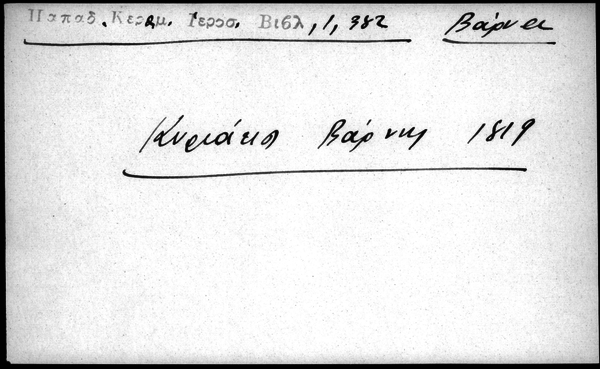 Παπαδ. Κεραμ. Ιεροσ. Βιβλ, 1, 382 Βάρνα
Κυριάκος Βάρνης 1819